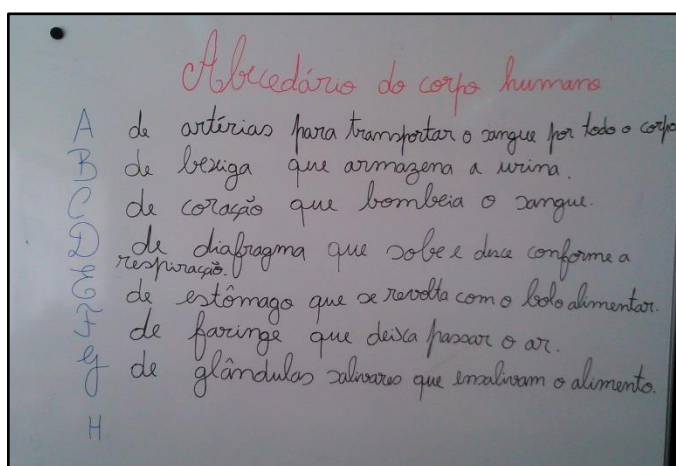 Abecedário do corpo humano
A de artérias para transportar o sangue por todo o corpo
B de bexiga que armazena a urina.
C de coração que bombeia o sangue.
D de diafragma que sobe e desce conforme a
respiração.
E de estômago que se revolta com o bolo alimentar.
F de faringe que deixa passar o ar.
G de glândulas salivares que ensalivam o alimento.
H